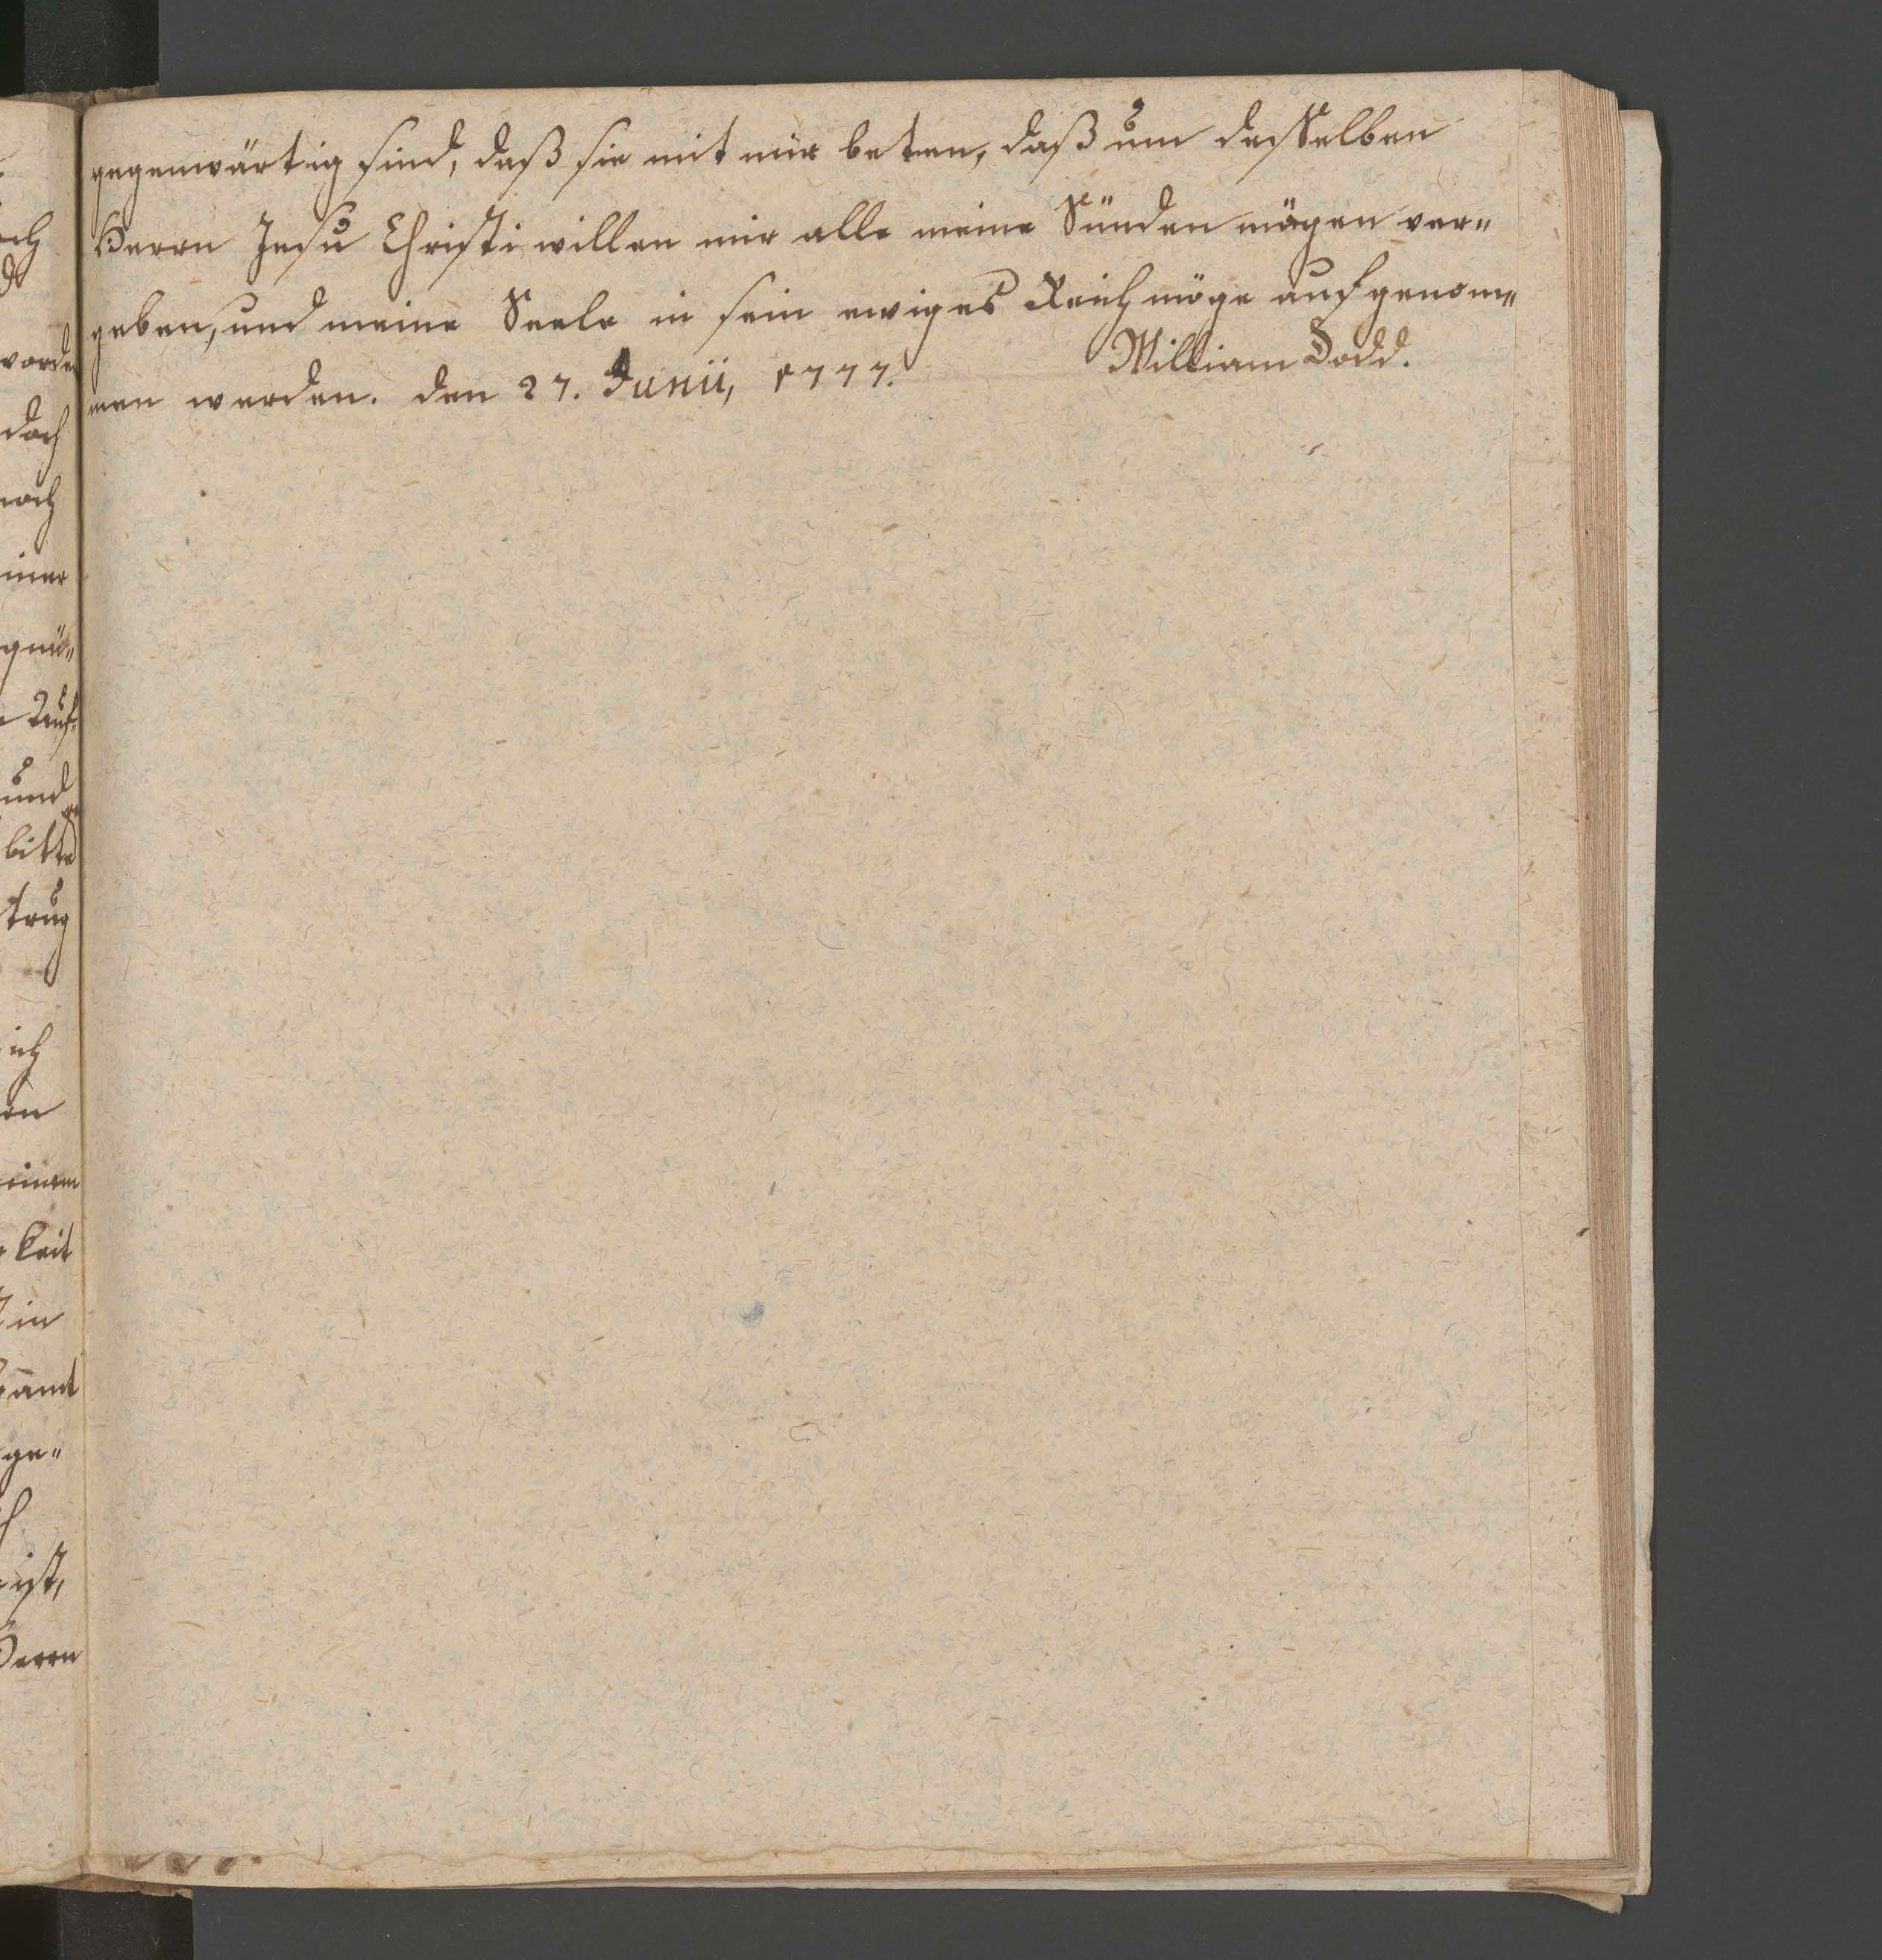 gegenwärtig sind, daß sie mit mir beten, daß um desselben
Herrn Jesu Christi willen mir alle meine Sünden mögen ver„
geben, und meine Seele in sein ewiges Reich möge aufgenom„
men werden. den 27. Junii, 1777. William Dodd.